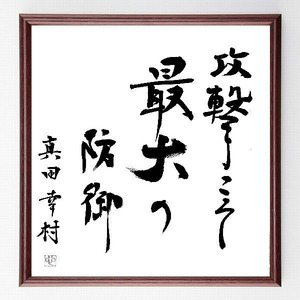 攻撃こそ
最大の
防御
真田幸村